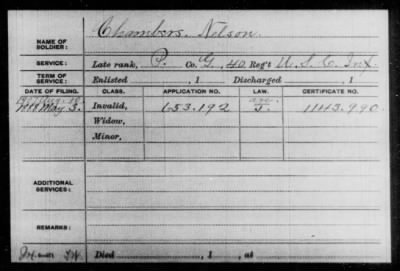 NAME OF SOLDIER: Chambers, Nelson.
SERVICE: Late rank, P. Co. G, 40 Reg't U.S.C. Inf.
TERM OF SERVICE: Enlisted , 1 Discharged , 1
DATE OF FILING. CLASS. APPLICATION NO. LAW. CERTIFICATE NO.
May 3. Invalid, 153.192 1143.990.
Widow,
Minor,
ADDITIONAL SERVICES:
REMARKS:
Died , 1 , at